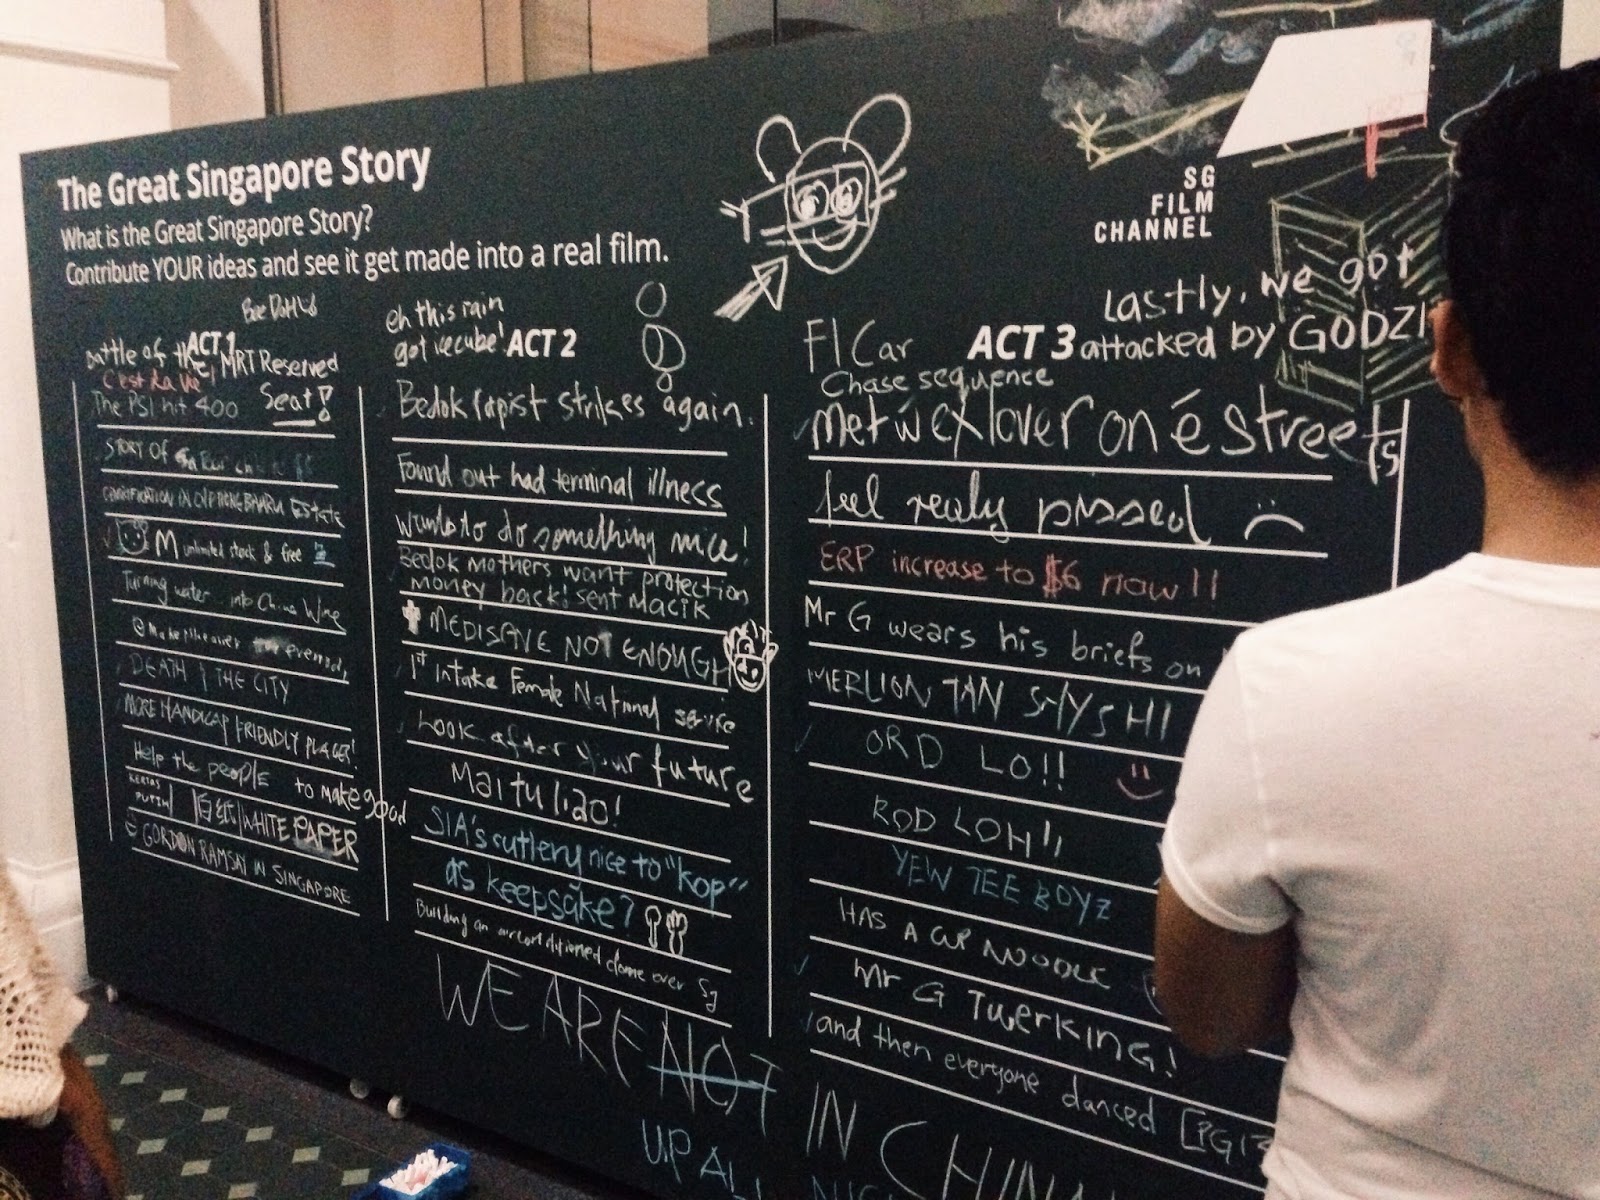 The Great Singapore Story
What is the Great Singapore Story?
Contribute YOUR ideas and see it get made into a real film.
SG
FILM
CHANNEL
ACT 1
Battle of the MRT Reserved
Seat!
C'est La Vie!
The PSI hit 400
STORY OF
IN ESTATE
M unlimited stock & free
Turning water into China Wine
DEATH THE CITY
MORE HANDICAP FRIENDLY PLACES!
Help the people to make good
KERTAS
PUTIH | 白纸 | WHITE PAPER
GORDON RAMSAY IN SINGAPORE
eh this rain
got icecube!
ACT 2
Bedok rapist strikes again.
Found out had terminal illness
wants to do something nice!
Bedok mothers want protection
money back! sent Macik
MEDISAVE NOT ENOUGH
1st Intake Female National service
Look after your future
Mai tu liao!
SIA's cutlery nice to "kop"
as keepsake?
Building an airconditioned dome over Sg
WE ARE NOT IN CHINA
UP ALL
ACT 3
Lastly, we got
attacked by GODZI
F1 Car
Chase sequence
met w ex lover on é streets
feel really pissed
ERP increase to $6 now!!
Mr G wears his briefs on
MERLION TAN SHYSHI
ORD LO!!
ROD LOH!!
YEW TEE BOYZ
HAS A CUP NOODLE
Mr G TWERKING!
and then everyone danced [PG13